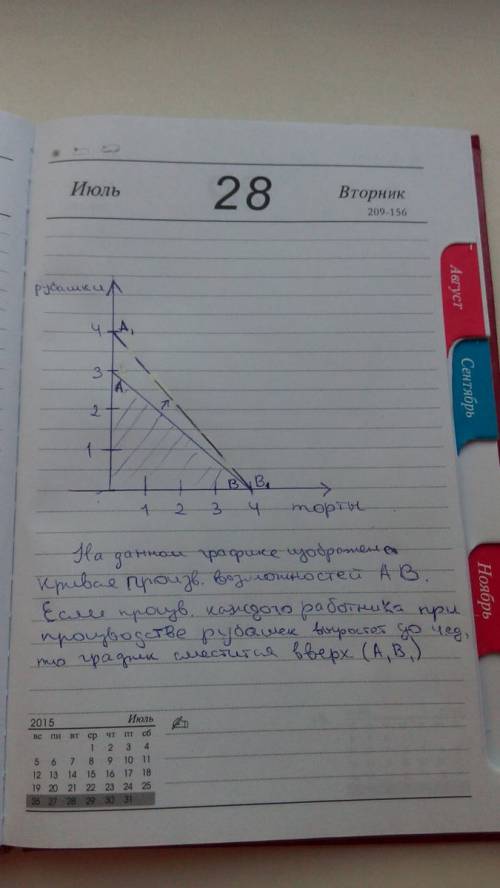 Июль 28 Вторник
209-156
Август
Сентябрь
Ноябрь
рубашки
4 A₁
3
A
2
1
B B₁
1 2 3 4 торты
На данном графике изображена
кривая произв. возможностей АВ.
Если произв. каждого работника при
производстве рубашек вырастет до 4ед,
то график сместится вверх (А₁В₁)
2015 Июль
вс пн вт ср чт пт сб
1 2 3 4
5 6 7 8 9 10 11
12 13 14 15 16 17 18
19 20 21 22 23 24 25
26 27 28 29 30 31